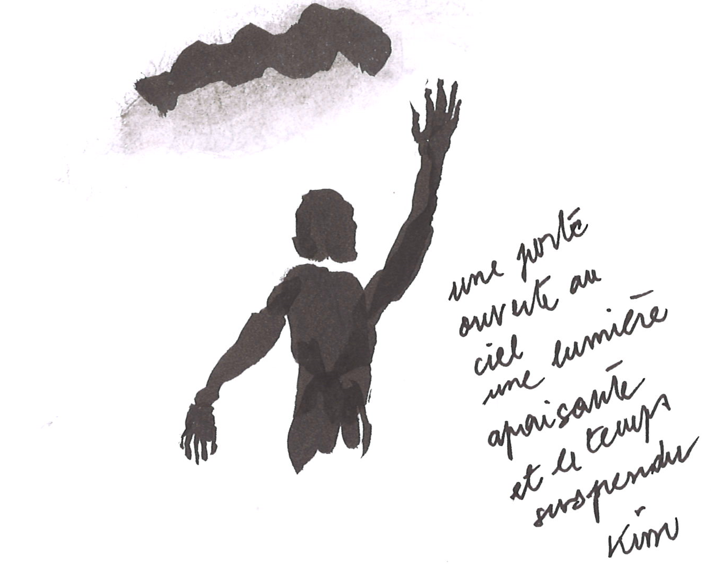 une porte
ouverte au
ciel
une lumière
apaisante
et le temps
suspendu
Kim